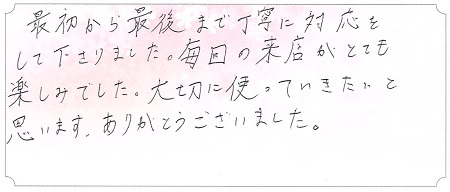 最初から最後まで丁寧に対応を
して下さりました。毎回の来店がとても
楽しみでした。大切に使っていきたいと
思います、ありがとうございました。